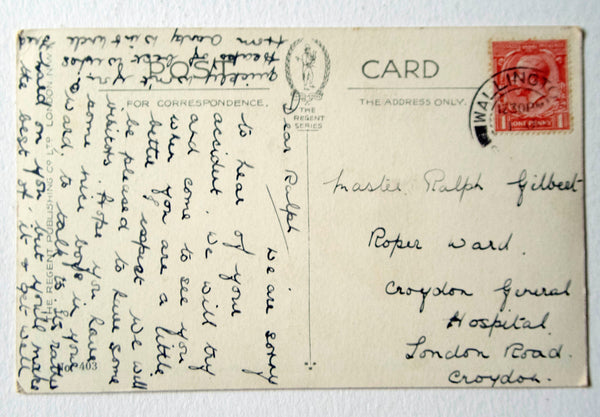 POST CARD
FOR CORRESPONDENCE.
THE ADDRESS ONLY.
THE REGENT SERIES
WALLINGTON
ONE PENNY
Dear Ralph
We are sorry
to hear of your
accident. We will try
and come to see you
when you are a little
better. I expect we will
be pleased to have some
visitors. Hope you have
some nice boys in your
ward, to talk to. Its rather
hard on you but you'll make
the best of it & get well
quickly won't you.
Heaps of best wishes
from Aunty Win & Uncle
Master Ralph Gilbert
Roper Ward.
Croydon General
Hospital.
London Road.
Croydon.
THE REGENT PUBLISHING CO LTD LONDON. N.W.
No 403